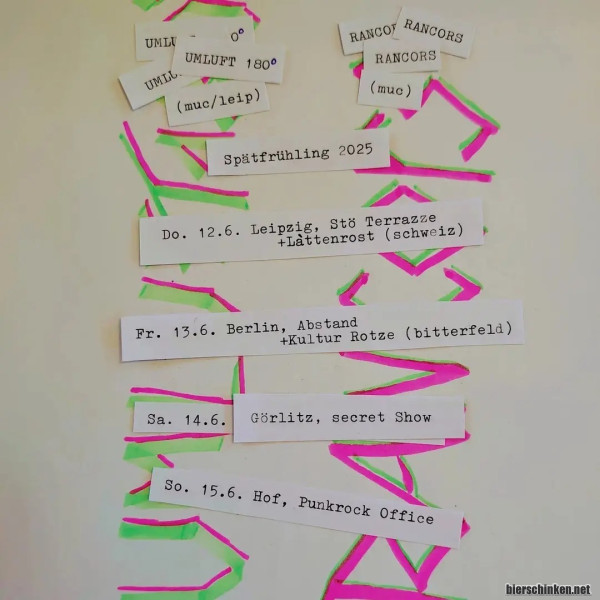 UMLU 0°
UMLUFT 180°
UMLU
(muc/leip)
RANCO
RANCORS
RANCORS
(muc)
Spätfrühling 2025
Do. 12.6. Leipzig, Stö Terrazze
+Làttenrost (schweiz)
Fr. 13.6. Berlin, Abstand
+Kultur Rotze (bitterfeld)
Sa. 14.6. Görlitz, secret Show
So. 15.6. Hof, Punkrock Office
bierschinken.net